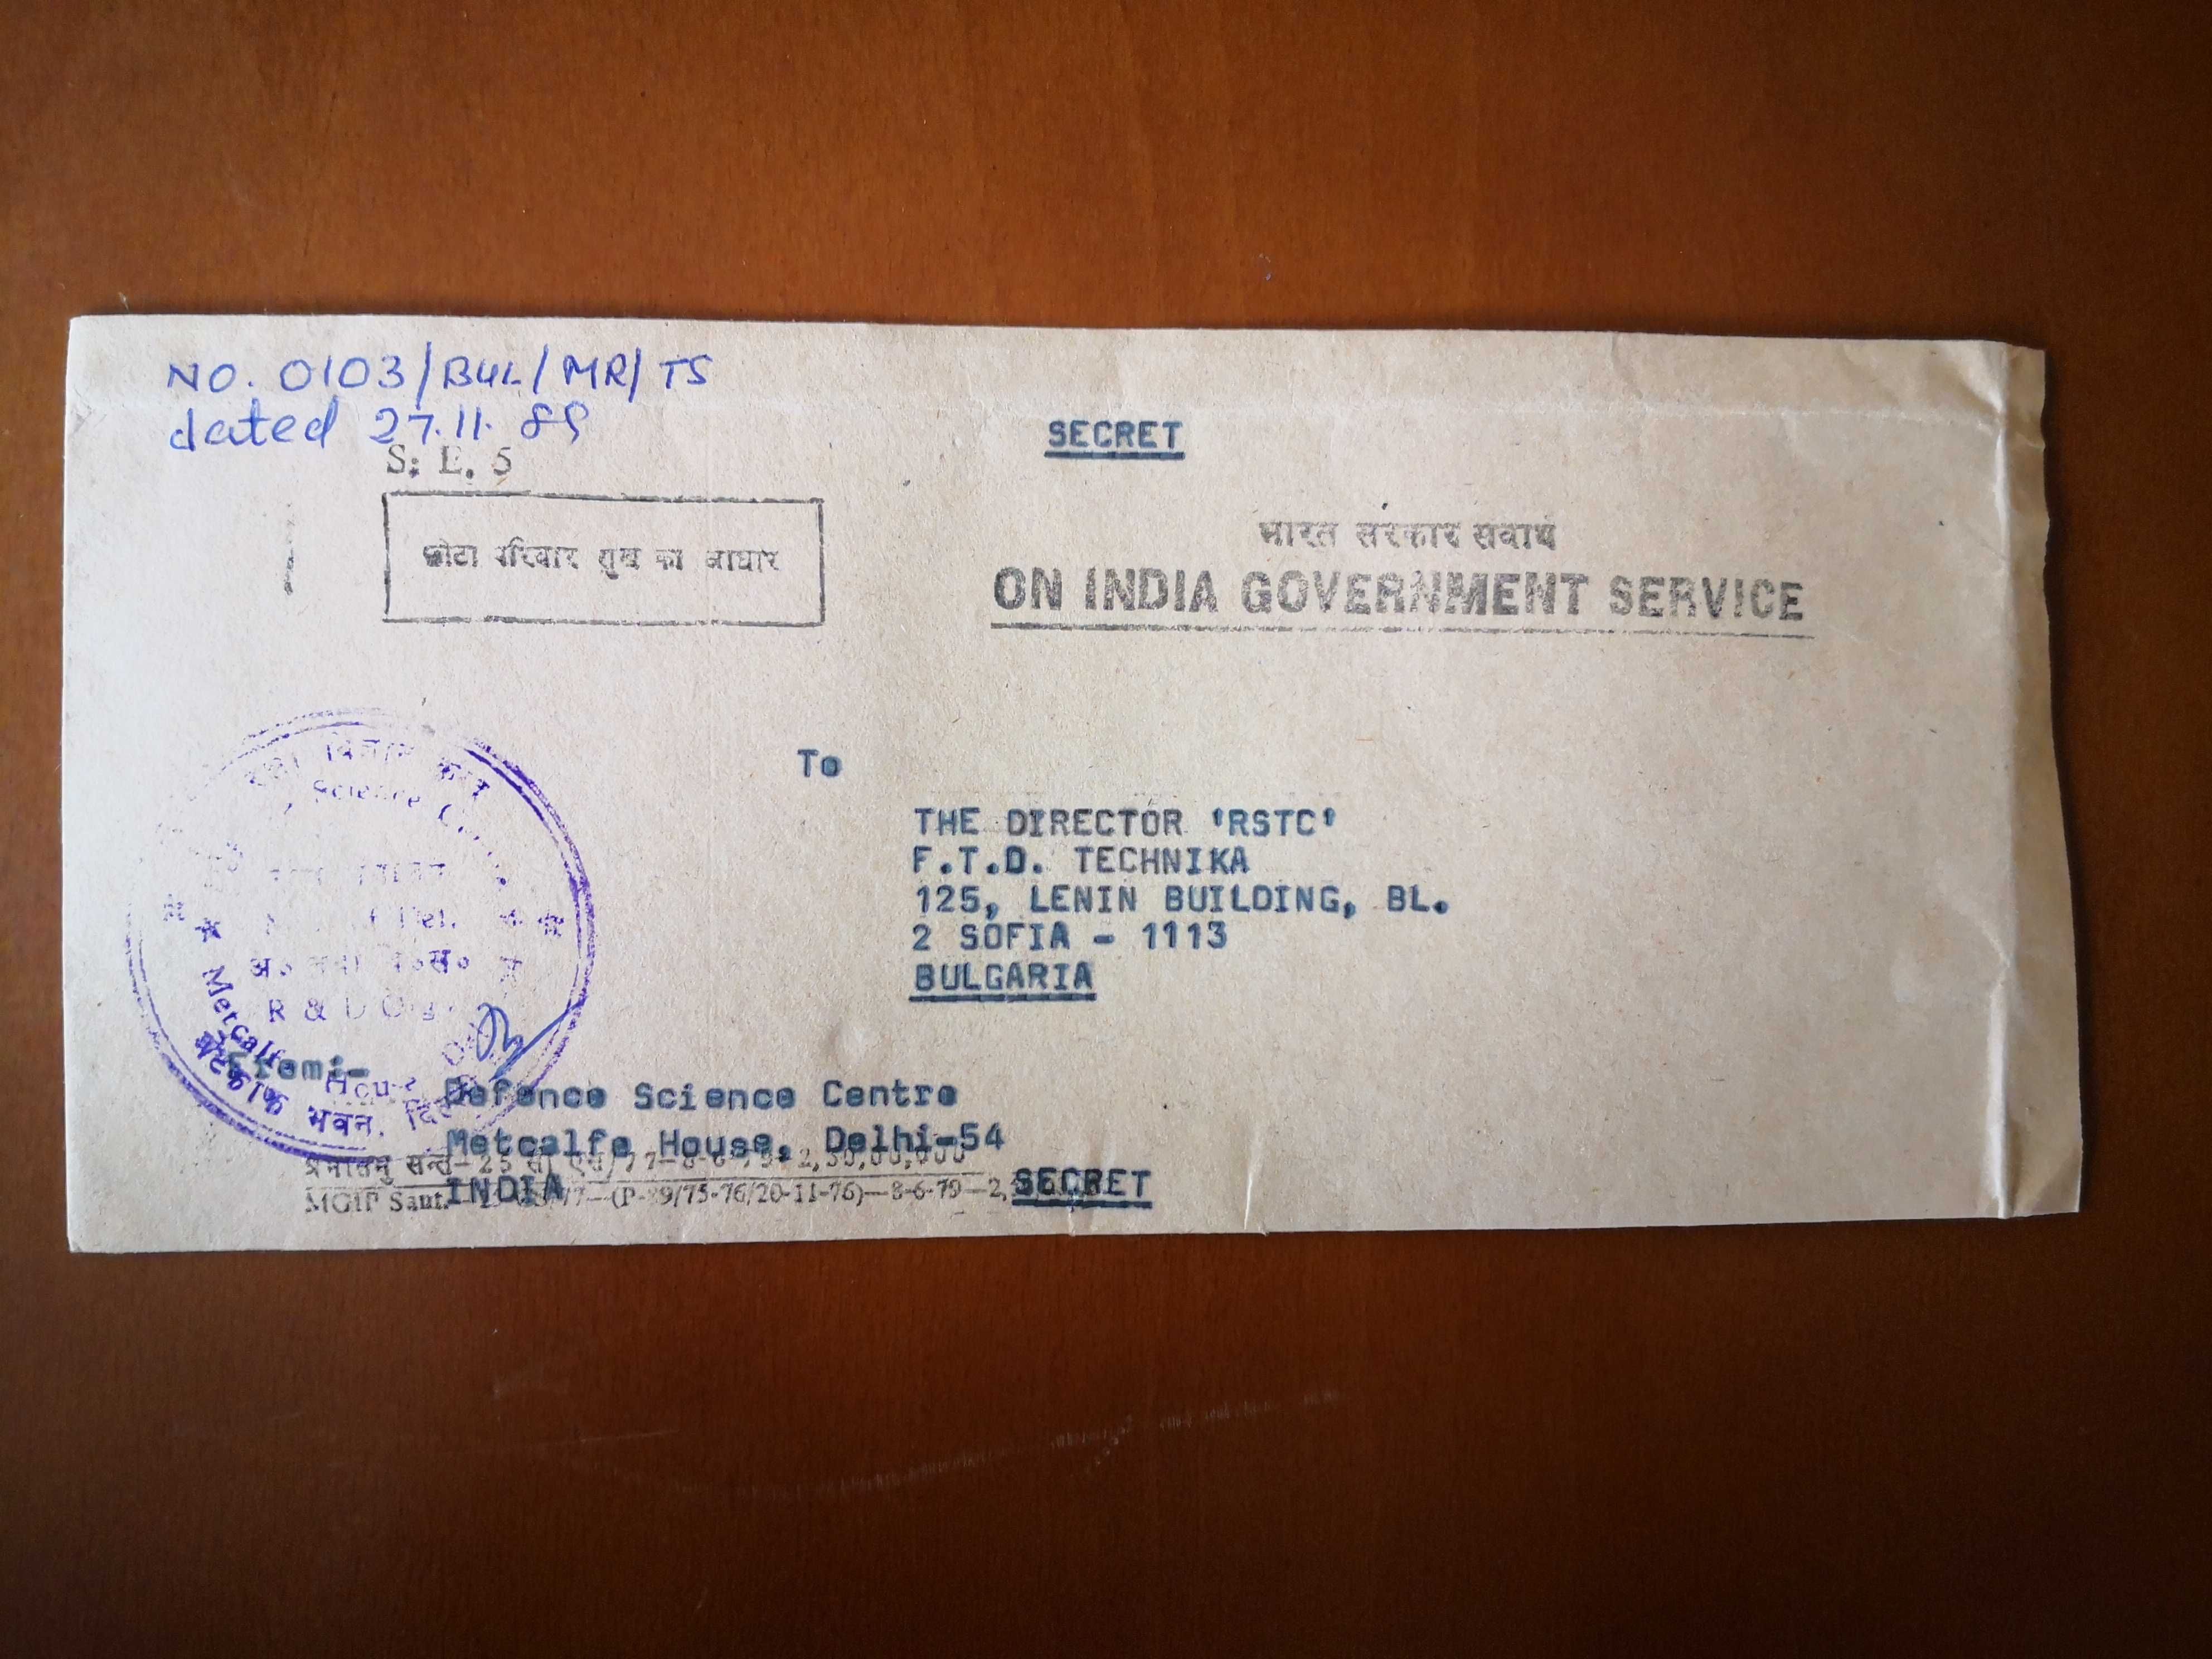 NO. 0103/BUL/MR/TS
dated 27.11.89
S. E. 5
SECRET
छोटा परिवार सुख का आधार
भारत सरकार सेवार्थ
ON INDIA GOVERNMENT SERVICE
To
THE DIRECTOR 'RSTC'
F.T.D. TECHNIKA
125, LENIN BUILDING, BL.
2 SOFIA - 1113
BULGARIA
Science
R & D
Metcalfe House
भवन.
From:-
Defence Science Centre
Metcalfe House, Delhi-54
INDIA
MGIP Sant. (P-29/75-76/20-11-76)—8-6-79—2,
SECRET